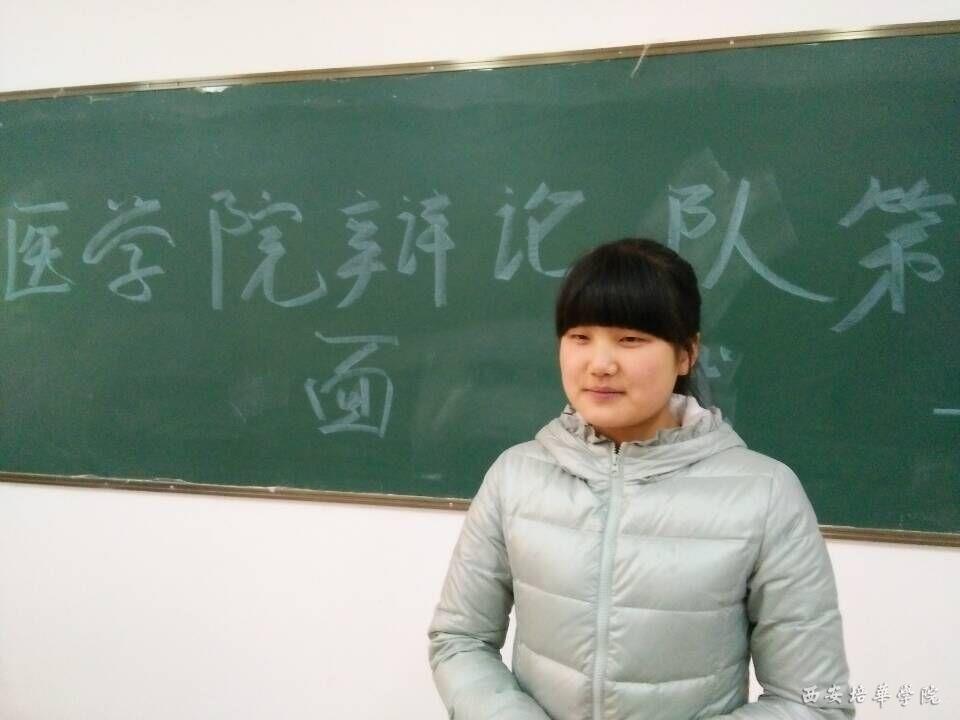 医学院辩论队第
面
西安培華学院